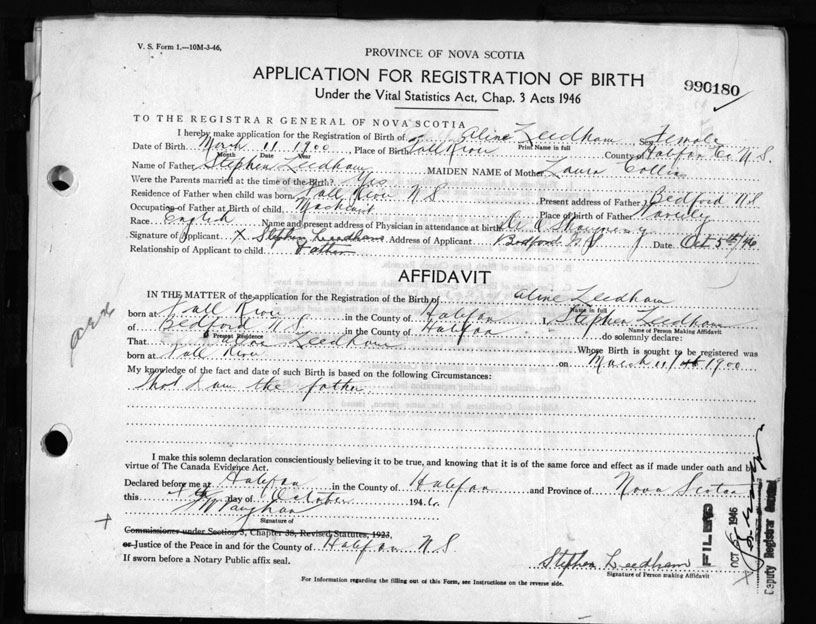 V. S. Form 1.—10M-3-46,
PROVINCE OF NOVA SCOTIA
APPLICATION FOR REGISTRATION OF BIRTH
990180
Under the Vital Statistics Act, Chap. 3 Acts 1946
TO THE REGISTRAR GENERAL OF NOVA SCOTIA
I hereby make application for the Registration of Birth of Aline Leedham Sex Female
Print Name in full
Date of Birth March 11 1900 Place of Birth County of Halifax Co. N.S.
Month Date Year
Name of Father Stephen Leedham MAIDEN NAME of Mother Laura Collins
Were the Parents married at the time of the Birth? Yes
Residence of Father when child was born N.S. Present address of Father Bedford NS
Occupation of Father at Birth of child Place of Birth of Father Waverley
Race English Name and present address of Physician in attendance at birth
Signature of Applicant X Stephen Leedham Address of Applicant Bedford N.S. Date Oct 5th/46
Relationship of Applicant to child Father
AFFIDAVIT
IN THE MATTER of the application for the Registration of the Birth of Aline Leedham
Name in full
born at in the County of Halifax I, Stephen Leedham
Name of Person Making Affidavit
of Bedford N.S. in the County of Halifax do solemnly declare:
Present Residence
That Leedham Whose Birth is sought to be registered was
born at on March 11/ 1900
My knowledge of the fact and date of such Birth is based on the following Circumstances:
That I am the father.
I make this solemn declaration conscientiously believing it to be true, and knowing that it is of the same force and effect as if made under oath and by
virtue of The Canada Evidence Act.
Declared before me at Halifax in the County of Halifax and Province of Nova Scotia
this day of October 1946.
Signature of
Commissioner under Section 3, Chapter 38, Revised Statutes, 1923,
or Justice of the Peace in and for the County of Halifax N.S.
If sworn before a Notary Public affix seal.
Stephen Leedham
Signature of Person making Affidavit
For Information regarding the filling out of this Form, see Instructions on the reverse side.
FILED
OCT 1946
Deputy Registrar General